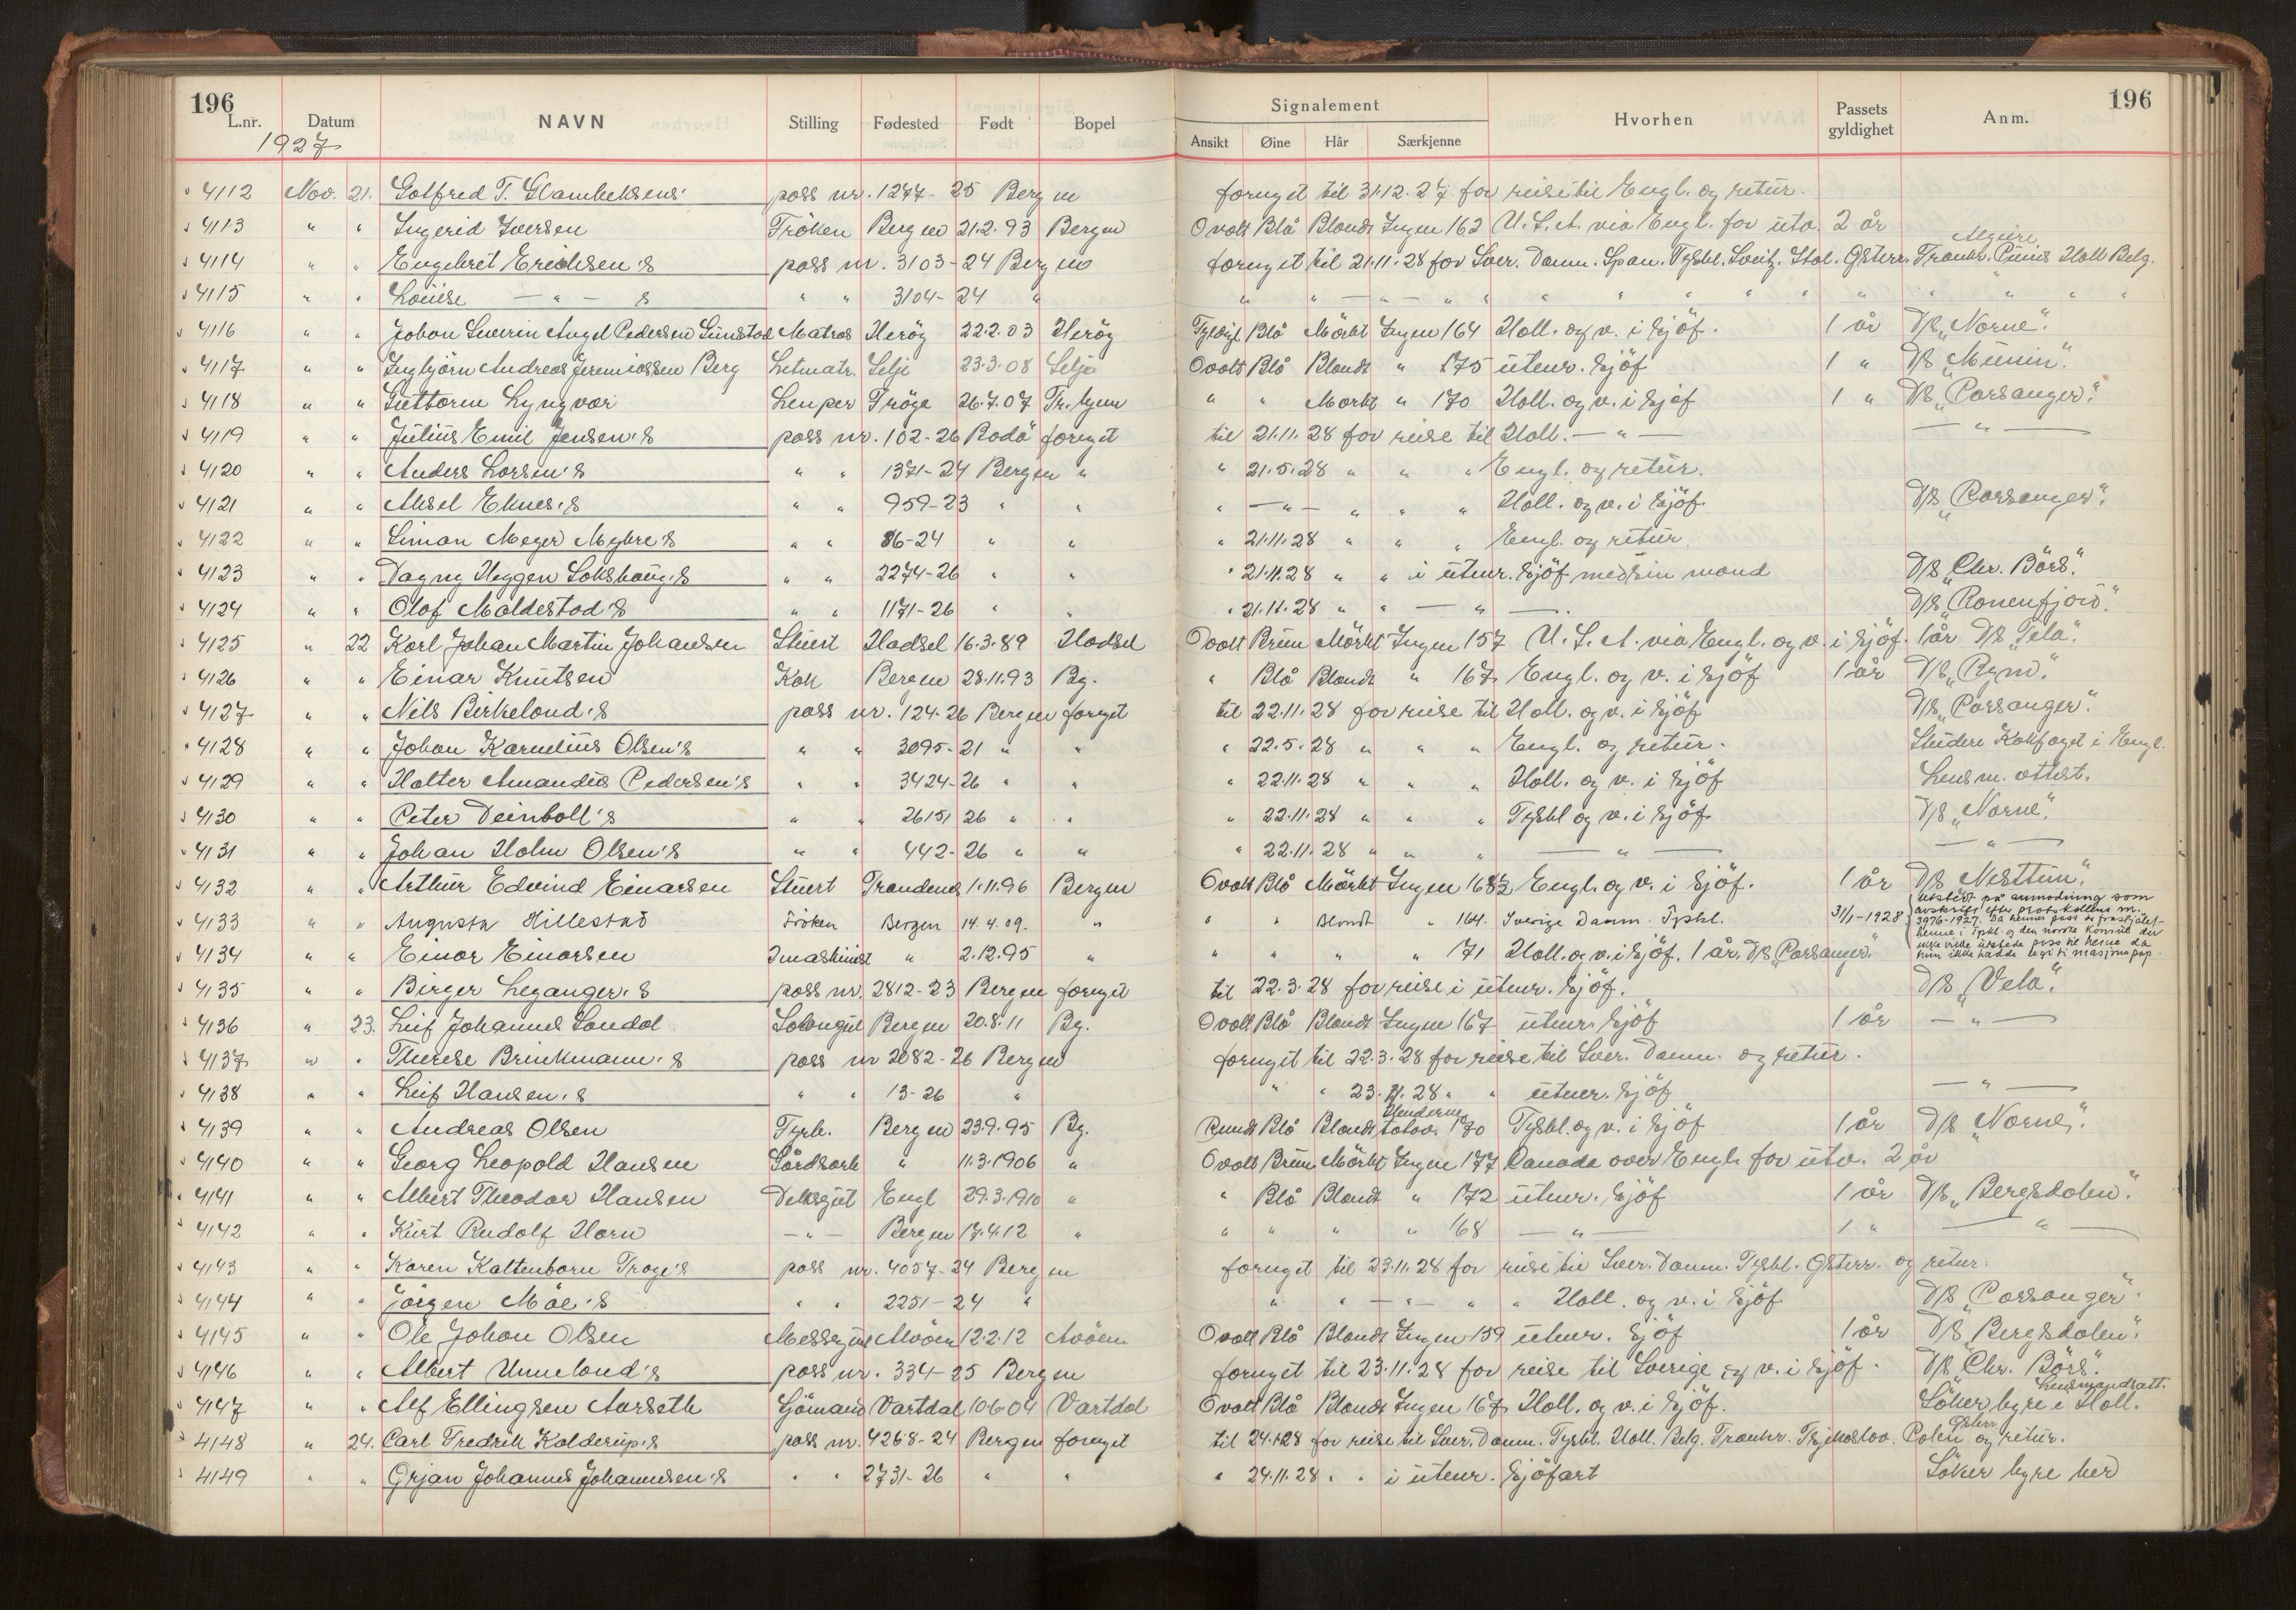 196 196
Signalement
L.nr. Datum NAVN Stilling Fødested Født Bopel Ansikt Øine Hår Særkjenne Hvorhen Passets gyldighet Anm.
1927
4112 Nov. 21. Gotfred T. pass nr. 1277-25 Bergen fornyet til 31.12.27 for reise til Engl. og retur.
4113 " " Ingerid Iversen Fröken Bergen 21.2.93 Bergen Ovalt Blå Blondt Ingen 162 U.S.A. via Engl. for utv. 2 år
Algiere
4114 " " Engebret Erichsen's pass nr. 3103-24 Bergen fornyet til 21.11.28 for Sver. Danm. Span. Tyskl. Sveitz. Ital. Østerr. Frankr. Tunis Holl Belg.
4115 " " Louise — " — s " " 3104-24 " " " — " — " " " " " " " " " " " "
4116 " " Johan Severin Angel Pedersen Gunstad Matros Heröy 22.2.03 Heröy Fyldigt Blå Mörkt Ingen 164 Holl. og v. i Sjöf. 1 år D/S "Norne".
4117 " " Ingbjörn Andreas Jeremiassen Berg Letmatr. Selje 23.3.08 Selje Ovalt Blå Blondt " 175 utenr. Sjöf 1 " D/S "Munin".
4118 " " Guttorm Lyngvær Lemper 26.7.07 " " Mörkt " 170 Holl. og v. i Sjöf 1 " D/S "Porsanger".
4119 " " Julius Emil Jensen's pass nr. 102-26 Bodö fornyet til 21.11.28 for reise til Holl. — " — — " —
4120 " " Anders Larsen's " " 1371-24 Bergen " " 21.5.28 " " " Engl. og retur.
4121 " " Aksel Eknes's " " 959-23 " " " — " — " " " Holl. og v. i Sjöf. D/S "Porsanger".
4122 " " Simon Meyer Myhre's " " 86-24 " " " 21.11.28 " " " Engl. og retur.
4123 " " Dagny Heggen Lokshaug's " " 2274-26 " " " 21.11.28 " " i utenr. Sjöf med sin mand D/S "Chr. Börs".
4124 " " Olaf Maldestad's " " 1171-26 " " " 21.11.28 " " — " — . D/S "Ranenfjord".
4125 " 22 Karl Johan Martin Johansen Stuert Hadsel 16.3.89 Hadsel Ovalt Brun Mörkt Ingen 157 U.S.A. via Engl. og v. i Sjöf. 1 år D/S "Tela".
4126 " " Einar Knutsen Kok Bergen 28.11.93 Bg. " Blå Blondt " 167 Engl. og v. i Sjöf 1 år D/S "Rym".
4127 " " Nils Birkeland's pass nr. 124-26 Bergen fornyet til 22.11.28 for reise til Holl. og v. i Sjöf D/S "Porsanger".
4128 " " Johan Karnelius Olsen's " " 3095-21 " " " 22.5.28 " " " Engl. og retur. Studere Kokfaget i Engl.
4129 " " Halter Amandus Pedersen's " " 3424-26 " " " 22.11.28 " " " Holl. og v. i Sjöf Lensm. attest.
4130 " " Peter Deinboll's " " 2615 26 " " " 22.11.28 " " " Tyskl og v. i Sjöf. D/S "Norne".
4131 " " Johan Holm Olsen's " " 442-26 " " " 22.11.28 " " " — " — — " —
4132 " " Arthur Edvind Einarsen Stuert Trandenes 1.11.96 Bergen Ovalt Blå Mörkt Ingen 168½ Engl. og v. i Sjöf. 1 år D/S "Nesttun".
4133 " " Augusta Hillestad Fröken Bergen 14.4.09. " " " Blondt " 164. Sverige Danm. Tyskl. 31/1-1928
utstedt på anmodning som
avskrift efter protokollens nr.
3976-1927. Da hennes pass er frastjålet
henne i Tyskl. og den norske konsul der
ikke vilde utstede pass til henne da
hun ikke hadde legitimasjonspap.
4134 " " Einar Einarsen 2 maskinist " 2.12.95 " " " " " 171 Holl. og v. i Sjöf. 1 år. D/S "Porsanger".
4135 " " Birger Leganger's pass nr. 2812-23 Bergen fornyet til 22.3.28 for reise i utenr. Sjöf. D/S "Vela".
4136 " 23. Leif Johannes Sandal Salongut Bergen 20.8.11 Bg. Ovalt Blå Blondt Ingen 167 utenr. Sjöf 1 år — " —
4137 " " Therese Brinkmann's pass nr 2082-26 Bergen fornyet til 22.3.28 for reise til Sver. Danm. og retur.
4138 " " Leif Hansen's " " 13-26 " " " 23.11.28 " " utenr. Sjöf — " —
Henderne
4139 " " Andreas Olsen Fyrb. Bergen 23.9.95 Bg. Rundt Blå Blondt tatov. 170 Tyskl. og v. i Sjöf 1 år D/S "Norne".
4140 " " Georg Leopold Hansen Gårdsarb " 11.3.1906 " Ovalt Brun Mörkt Ingen 177 Canada over Engl. for utv. 2 år
4141 " " Albert Theodor Hansen Deksgut Engl 29.3.1910 " " Blå Blondt " 172 utenr. Sjöf 1 år D/S "Bergsdalen".
4142 " " Kurt Rudolf Horn — " — Bergen 17.4.12 " " " " " 168 — " — 1 " — " —
4143 " " Karen Kaltenborn Troye's pass nr. 4057-24 Bergen fornyet til 23.11.28 for reise til Sver. Danm. Tyskl. Østerr. og retur.
4144 " " Jörgen Moe's " " 2251-24 " " " — " — " " Holl. og v. i Sjöf D/S "Porsanger".
4145 " " Ole Johan Olsen Messegut Alvöen 12.2.12 Alvöen Ovalt Blå Blondt Ingen 159 utenr. Sjöf 1 år D/S "Bergsdalen".
4146 " " Albert Unneland's pass nr. 334-25 Bergen fornyet til 23.11.28 for reise til Sverige og v. i Sjöf. D/S "Chr. Börs".
Lensmandsatt.
4147 " " Alf Ellingsen Aarseth Sjömand Vartdal 10.6.04 Vartdal Ovalt Blå Blondt Ingen 167 Holl. og v. i Sjöf. Söker hyre i Holl.
Østerr
4148 " 24. Carl Fredrik Kolderup's pass nr. 4268-24 Bergen fornyet til 24.1.28 for reise til Sver. Danm. Tyskl. Holl. Belg. Frankr. Tsjekoslov. Polen og retur.
4149 " " Ørjan Johannes Johannesen's " " 2731-26 " " " 24.11.28 " " i utenr. Sjöfart Söker hyre her